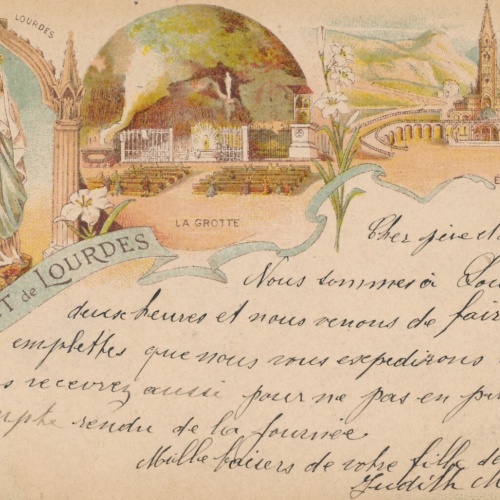 LOURDES
LA GROTTE
T de LOURDES
Cher père et
Nous sommes à
deux heures et nous venons de fair
emplettes que nous vous expedirons
s recevrez aussi pour ne pas en
rendu de la journée
Mille baisers de votre fille
Judith M